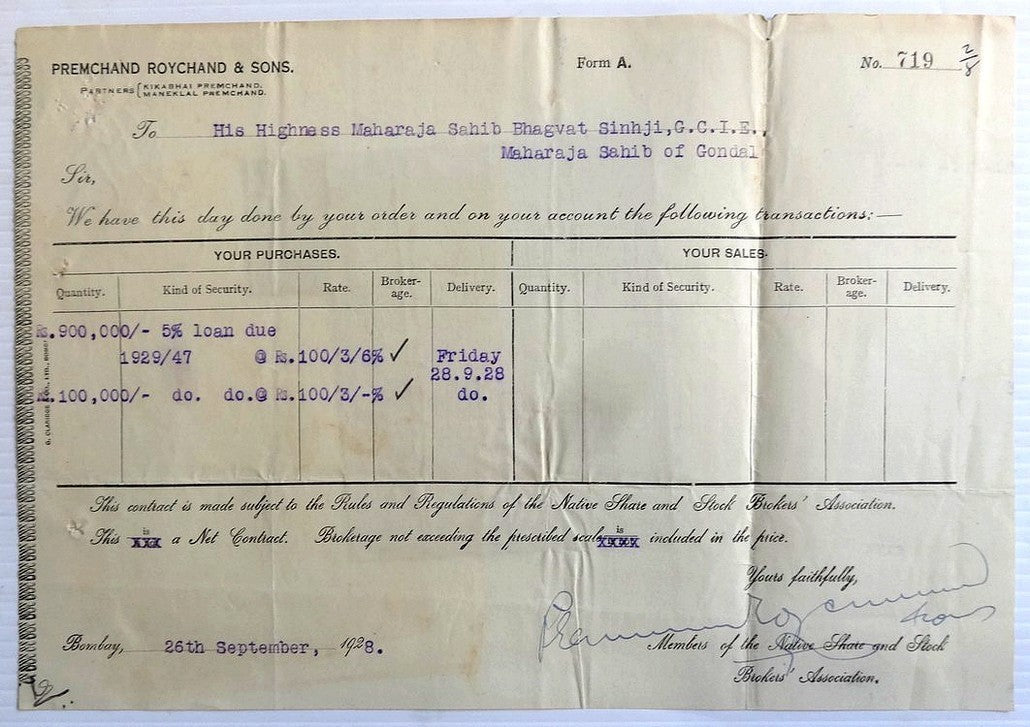 PREMCHAND ROYCHAND & SONS.
PARTNERS { KIKABHAI PREMCHAND.
MANEKLAL PREMCHAND.
Form A.
No. 719 2/8
To His Highness Maharaja Sahib Bhagvat Sinhji,G.C.I.E.,
Maharaja Sahib of Gondal
Sir,
We have this day done by your order and on your account the following transactions:—
YOUR PURCHASES. YOUR SALES.
Quantity. Kind of Security. Rate. Broker-age. Delivery. Quantity. Kind of Security. Rate. Broker-age. Delivery.
Rs.900,000/- 5% loan due
1929/47 @ Rs.100/3/6% ✓ Friday
28.9.28
Rs.100,000/- do. do.@ Rs.100/3/-% ✓ do.
This contract is made subject to the Rules and Regulations of the Native Share and Stock Brokers' Association.
This is a Net Contract. Brokerage not exceeding the prescribed scale is included in the price.
Yours faithfully,
Premchand Roychand & Sons
Bombay, 26th September, 1928.
Members of the Native Share and Stock
Brokers' Association.